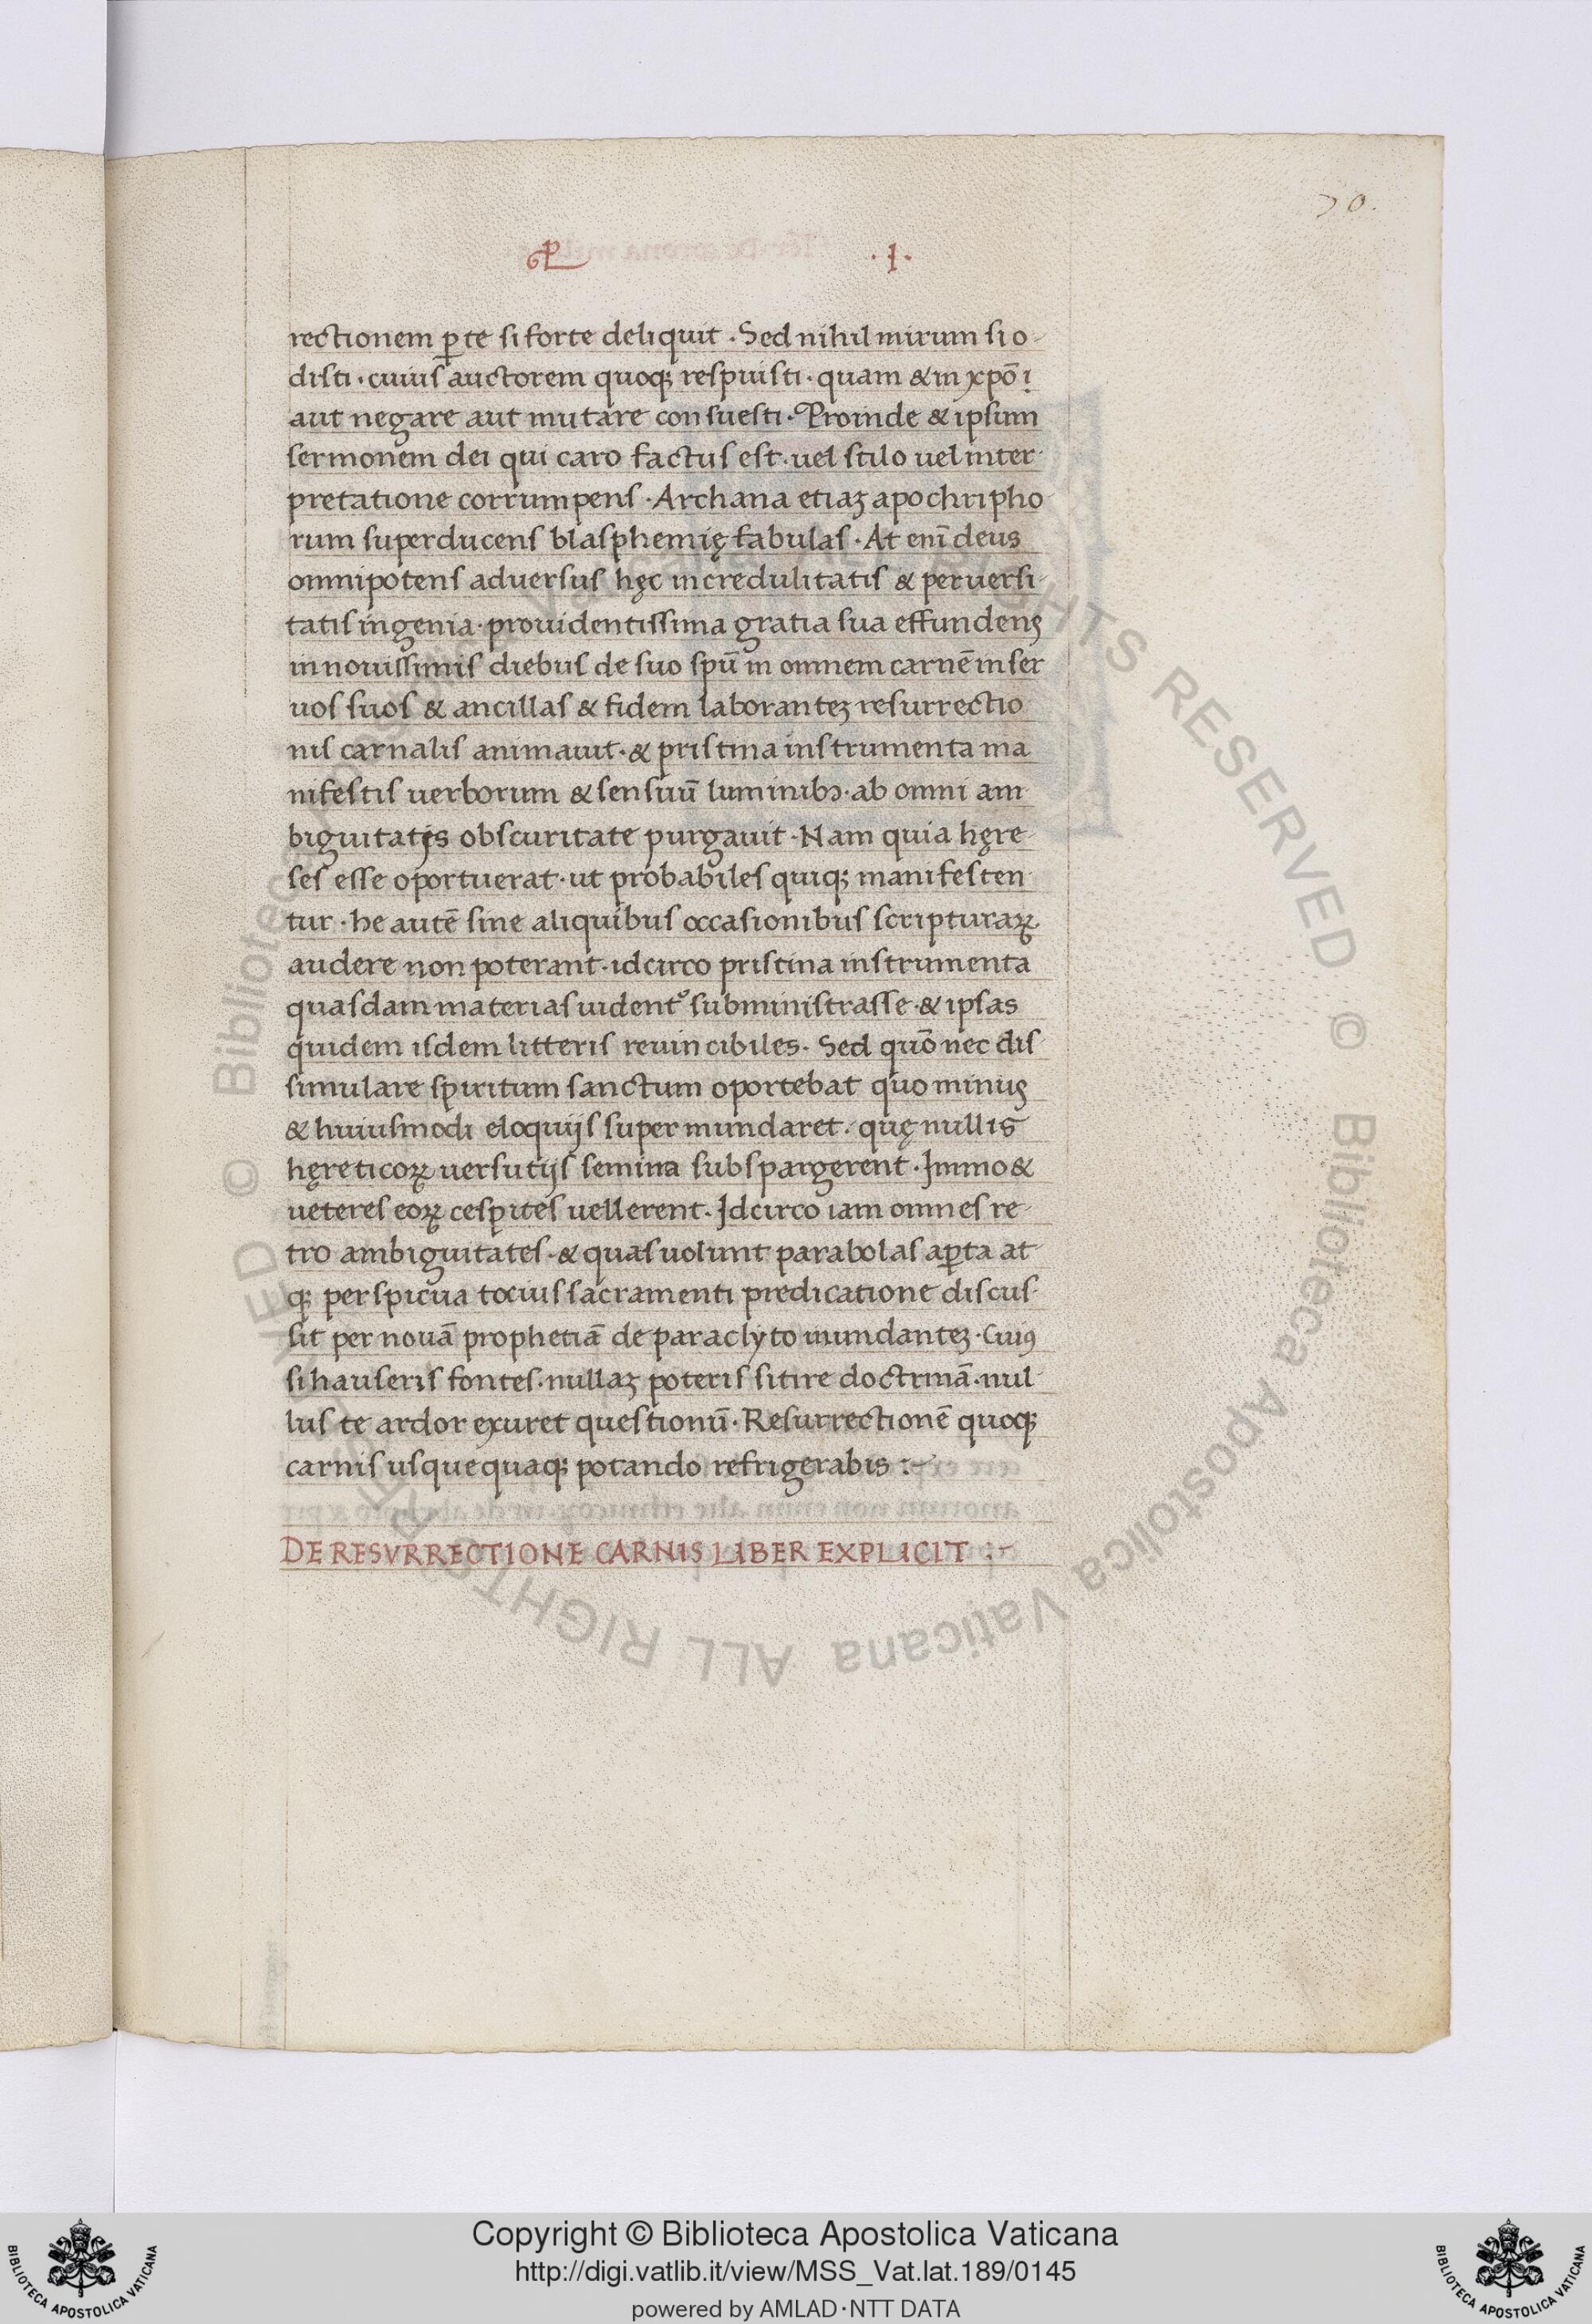 70.
L .I.
rectionem ꝑte si forte deliquit . Sed nihil mirum si o-
disti . cuius auctorem quoqꝫ respuisti . quam & in xp̄o i
aut negare aut mutare consuesti . Proinde & ipsum
sermonem dei qui caro factus est . uel stilo uel inter-
pretatione corrumpens . Archana etiaꝫ apochripho
rum superducens blasphemię fabulas . At eni̅ deus
omnipotens aduersus hęc incredulitatis & peruersi-
tatis ingenia . prouidentissima gratia sua effundens
in nouissimis diebus de suo spū in omnem carnē in ser
uos suos & ancillas & fidem laboranteꝫ resurrectio
nis carnalis animauit . & pristina instrumenta ma
nifestis uerborum & sensuū luminibꝫ . ab omni am
biguitatis obscuritate purgauit . Nam quia hęre-
ses esse oportuerat . ut probabiles quiqꝫ manifesten
tur . he autē sine aliquibus occasionibus scripturaꝝ
audere non poterant . idcirco pristina instrumenta
quasdam materias uident᷑ subministrasse . & ipsas
quidem isdem litteris reuincibiles . Sed quō nec dis
simulare spiritum sanctum oportebat quo minus
& huiusmodi eloquijs super mundaret . quę nullis
hęreticoꝝ uersutijs semina subspargerent . Immo &
ueteres eoꝝ cespites uellerent . Idcirco iam omnes re-
tro ambiguitates . & quas uolunt parabolas aꝑta at
qꝫ perspicua tocius sacramenti predicatione discus-
sit per nouā prophetiā de paraclyto inundanteꝫ . Cuiꝰ
si hauseris fontes . nullaꝫ poteris sitire doctrinā . nul
lus te ardor exuret questionū . Resurrectionē quoqꝫ
carnis usquequaqꝫ potando refrigerabis :~
DE RESVRRECTIONE CARNIS LIBER EXPLICIT :~
© Biblioteca Apostolica Vaticana ALL RIGHTS RESERVED
Copyright © Biblioteca Apostolica Vaticana
http://digi.vatlib.it/view/MSS_Vat.lat.189/0145
powered by AMLAD·NTT DATA
BIBLIOTECA APOSTOLICA VATICANA
BIBLIOTECA APOSTOLICA VATICANA